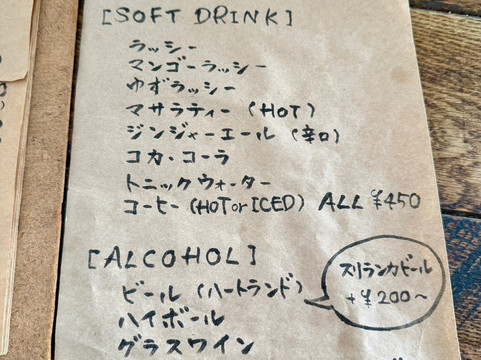 [SOFT DRINK]
ラッシー
マンゴーラッシー
ゆずラッシー
マサラティー (HOT)
ジンジャーエール (辛口)
コカ・コーラ
トニックウォーター
コーヒー (HOT or ICED) ALL ¥450
[ALCOHOL]
ビール (ハートランド)
スリランカビール
+¥200~
ハイボール
グラスワイン